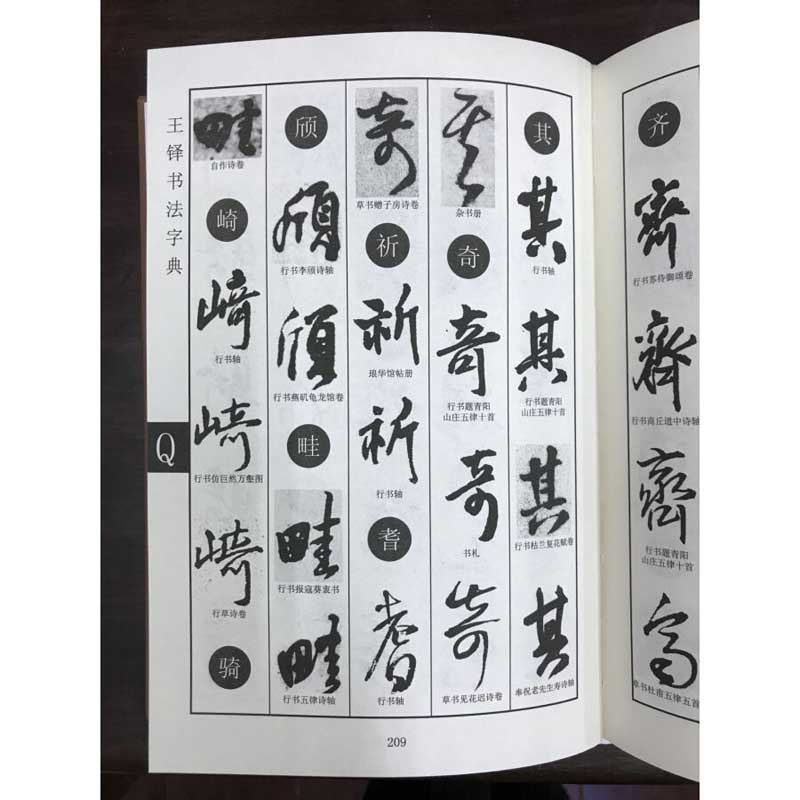 齐
齊
行书苏侍御颂卷
齊
行书商丘道中诗轴
齊
行书题青阳
山庄五律十首
齐
草书杜甫五律五首
其
其
行书轴
其
行书题青阳
山庄五律十首
其
行书枯兰复花赋卷
其
奉祝老先生寿诗轴
其
杂书册
奇
奇
行书题青阳
山庄五律十首
奇
书札
奇
草书见花迟诗卷
奇
草书赠子房诗卷
祈
祈
琅华馆帖册
祈
行书轴
耆
耆
行书轴
颀
頎
行书李颀诗轴
頎
行书燕矶龟龙馆卷
畦
畦
行书报寇葵衷书
畦
行书五律诗轴
畦
自作诗卷
崎
崎
行书轴
崎
行书仿巨然万壑图
崎
行草诗卷
骑
王铎书法字典
Q
209